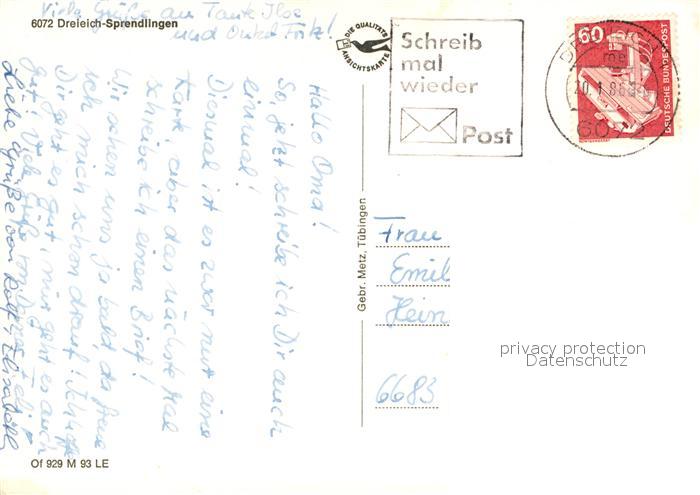 Viele Grüße an Tante Ilse
und Onkel Fritz!
6072 Dreieich-Sprendlingen
DIE QUALITÄTS
ANSICHTSKARTE
Schreib
mal
wieder
Post
60
DEUTSCHE BUNDESPOST
20.1.86
6072
Hallo Oma!
So, jetzt schreibe ich Dir auch
einmal!
Diesmal ist es zwar nur eine
Karte, aber das nächste Mal
schreibe ich einen Brief!
Wir sehen uns ja bald, da freue
ich mich schon drauf! Ich hoffe
Dir geht es gut, mir geht es auch
gut! Viele Grüße von
Liebe Grüße von Rolf + Elisabeth
Gebr. Metz, Tübingen
Frau
Emil
Hein
6683
privacy protection
Datenschutz
Of 929 M 93 LE